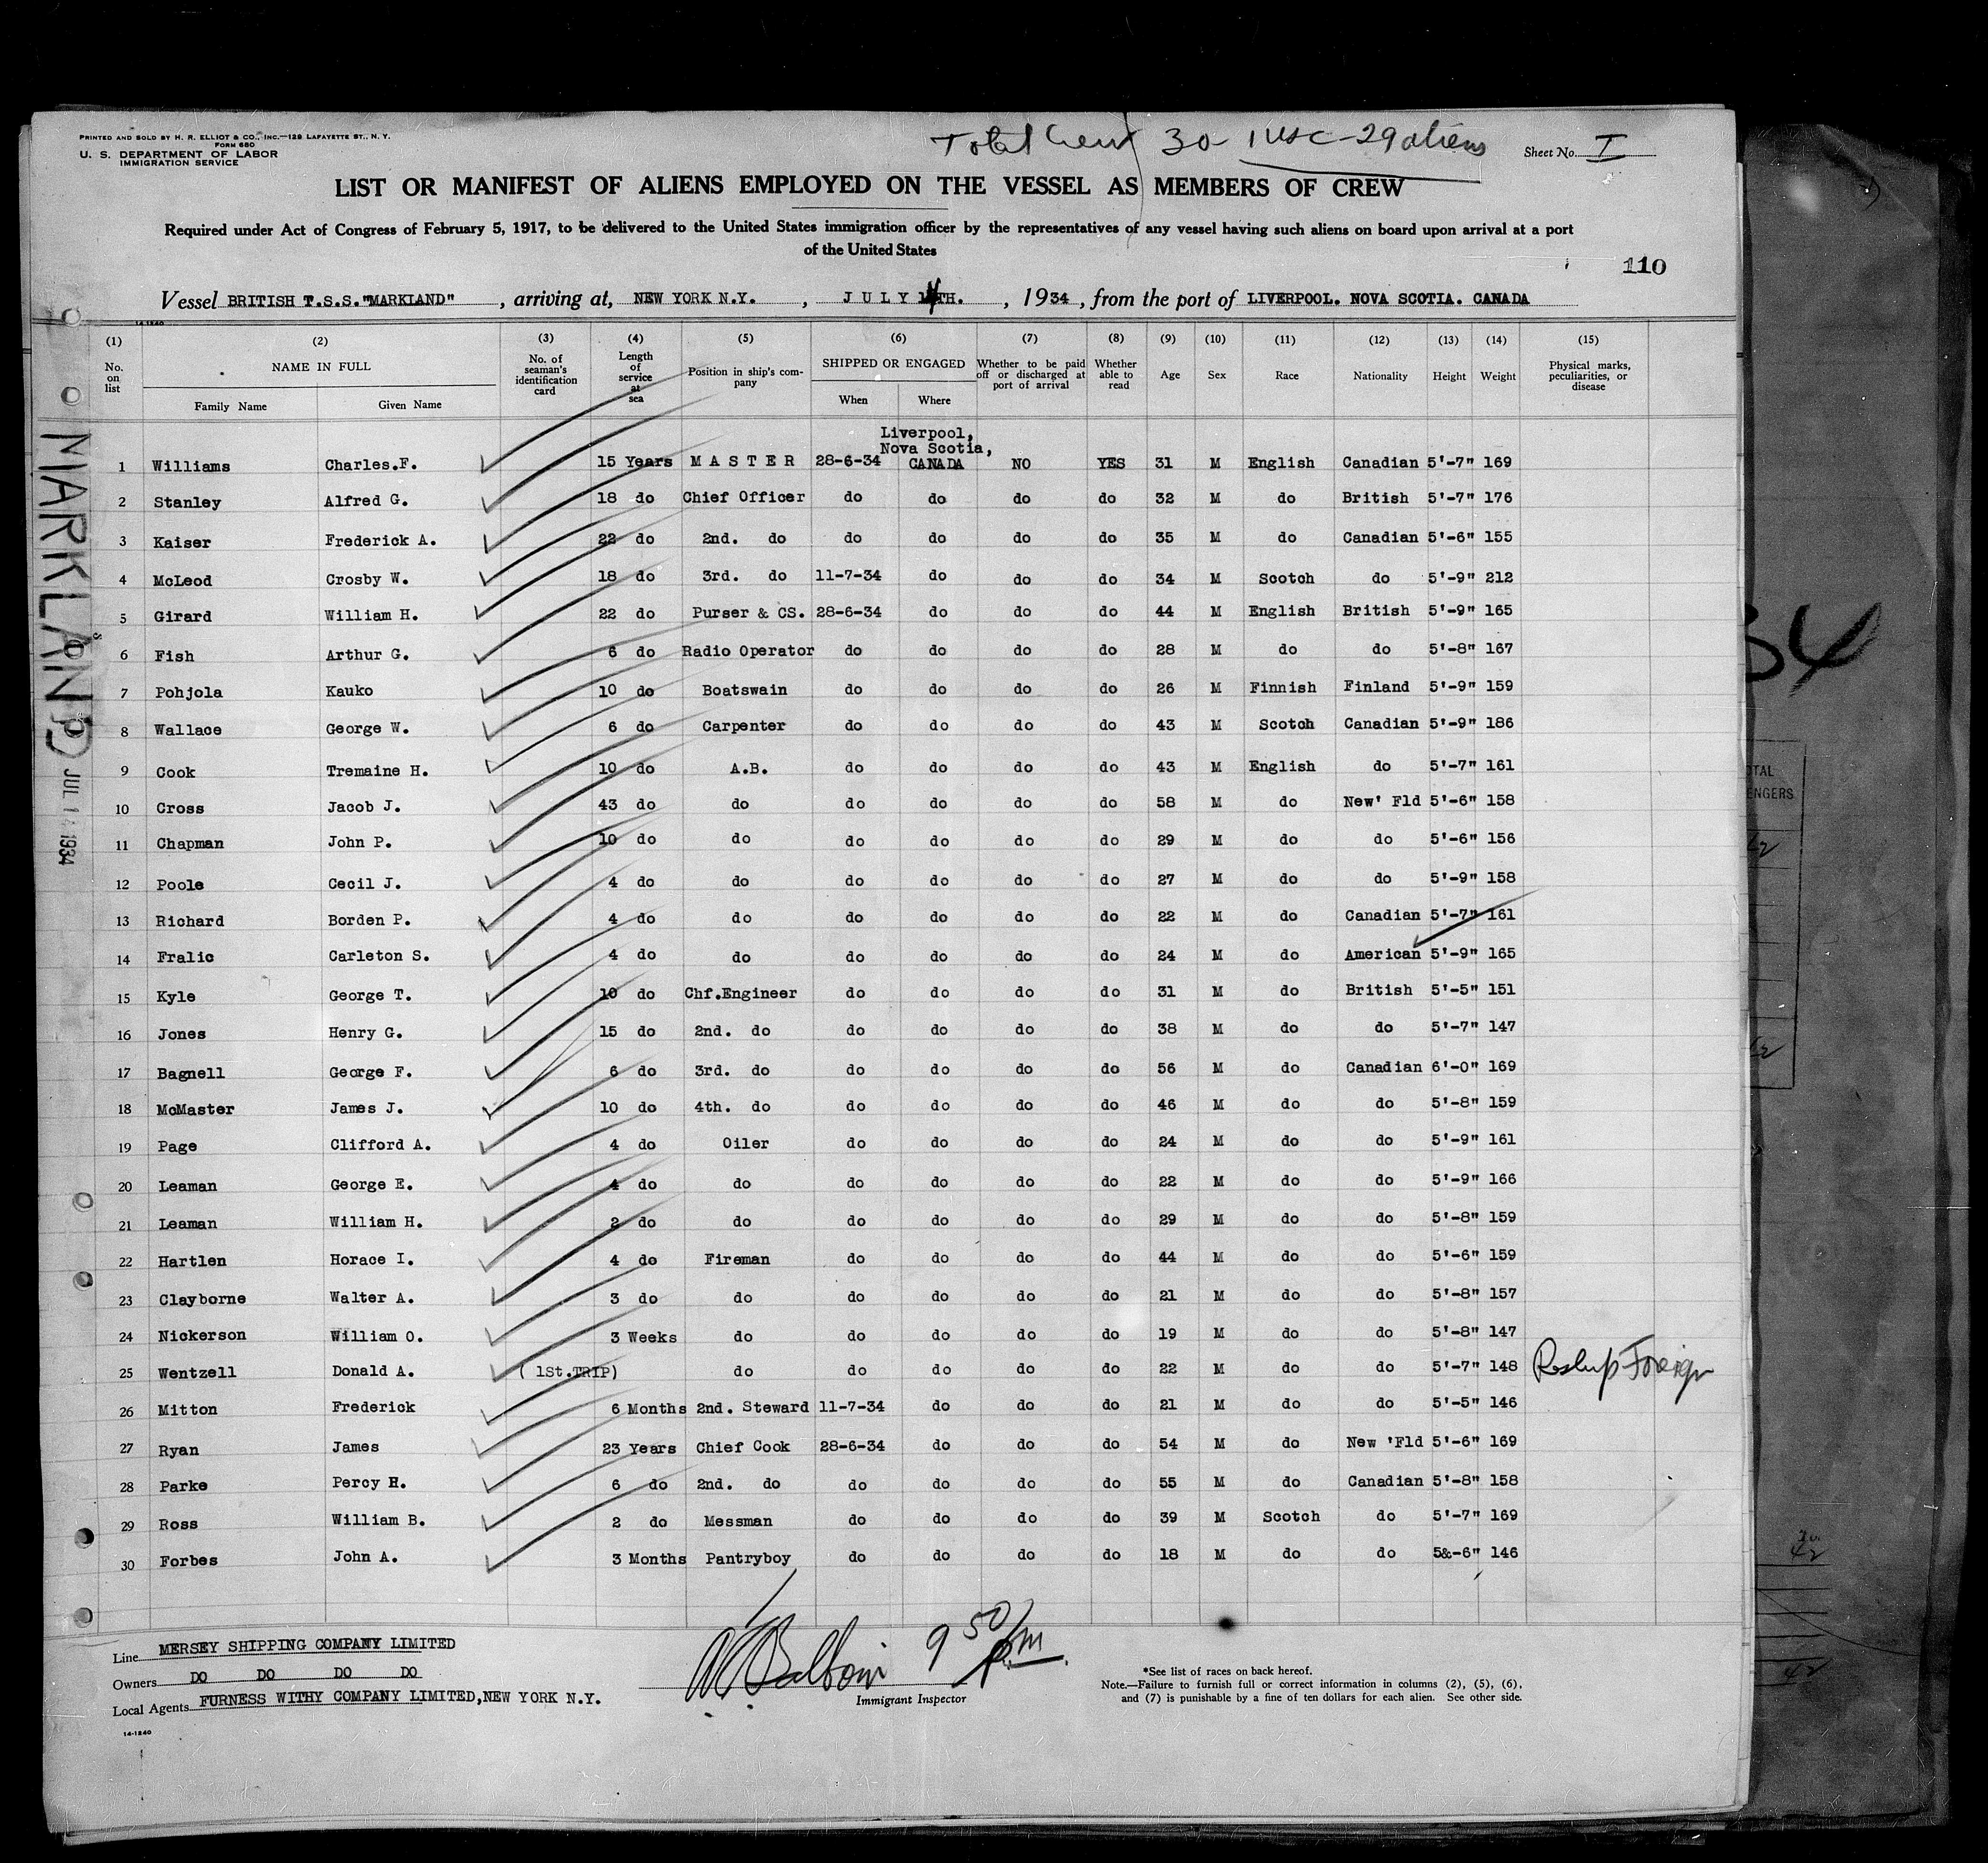 PRINTED AND SOLD BY H. R. ELLIOT & CO., INC.—129 LAFAYETTE ST., N. Y.
FORM 680
U. S. DEPARTMENT OF LABOR
IMMIGRATION SERVICE
Total Crew 30 - 1 USC - 29 aliens
Sheet No. I
LIST OR MANIFEST OF ALIENS EMPLOYED ON THE VESSEL AS MEMBERS OF CREW
Required under Act of Congress of February 5, 1917, to be delivered to the United States immigration officer by the representatives of any vessel having such aliens on board upon arrival at a port
of the United States
110
Vessel BRITISH T.S.S."MARKLAND" , arriving at, NEW YORK N.Y. , JULY 14TH. , 1934 , from the port of LIVERPOOL. NOVA SCOTIA. CANADA
14-1240
(1) (2) (3) (4) (5) (6) (7) (8) (9) (10) (11) (12) (13) (14) (15)
No. on list NAME IN FULL No. of seaman's identification card Length of service at sea Position in ship's company SHIPPED OR ENGAGED Whether to be paid off or discharged at port of arrival Whether able to read Age Sex Race Nationality Height Weight Physical marks, peculiarities, or disease
Family Name Given Name When Where
Liverpool,
Nova Scotia,
1 Williams Charles.F. 15 Years MASTER 28-6-34 CANADA NO YES 31 M English Canadian 5'-7" 169
2 Stanley Alfred G. 18 do Chief Officer do do do do 32 M do British 5'-7" 176
3 Kaiser Frederick A. 22 do 2nd. do do do do do 35 M do Canadian 5'-6" 155
4 McLeod Crosby W. 18 do 3rd. do 11-7-34 do do do 34 M Scotch do 5'-9" 212
5 Girard William H. 22 do Purser & CS. 28-6-34 do do do 44 M English British 5'-9" 165
6 Fish Arthur G. 6 do Radio Operator do do do do 28 M do do 5'-8" 167
7 Pohjola Kauko 10 do Boatswain do do do do 26 M Finnish Finland 5'-9" 159
8 Wallace George W. 6 do Carpenter do do do do 43 M Scotch Canadian 5'-9" 186
9 Cook Tremaine H. 10 do A.B. do do do do 43 M English do 5'-7" 161
10 Cross Jacob J. 43 do do do do do do 58 M do New' Fld 5'-6" 158
11 Chapman John P. 10 do do do do do do 29 M do do 5'-6" 156
12 Poole Cecil J. 4 do do do do do do 27 M do do 5'-9" 158
13 Richard Borden P. 4 do do do do do do 22 M do Canadian 5'-7" 161
14 Fralic Carleton S. 4 do do do do do do 24 M do American 5'-9" 165
15 Kyle George T. 10 do Chf.Engineer do do do do 31 M do British 5'-5" 151
16 Jones Henry G. 15 do 2nd. do do do do do 38 M do do 5'-7" 147
17 Bagnell George F. 6 do 3rd. do do do do do 56 M do Canadian 6'-0" 169
18 McMaster James J. 10 do 4th. do do do do do 46 M do do 5'-8" 159
19 Page Clifford A. 4 do Oiler do do do do 24 M do do 5'-9" 161
20 Leaman George E. 4 do do do do do do 22 M do do 5'-9" 166
21 Leaman William H. 2 do do do do do do 29 M do do 5'-8" 159
22 Hartlen Horace I. 4 do Fireman do do do do 44 M do do 5'-6" 159
23 Clayborne Walter A. 3 do do do do do do 21 M do do 5'-8" 157
24 Nickerson William O. 3 Weeks do do do do do 19 M do do 5'-8" 147
25 Wentzell Donald A. ( 1St.TRIP) do do do do do 22 M do do 5'-7" 148 Reship Foreign
26 Mitton Frederick 6 Months 2nd. Steward 11-7-34 do do do 21 M do do 5'-5" 146
27 Ryan James 23 Years Chief Cook 28-6-34 do do do 54 M do New 'Fld 5'-6" 169
28 Parke Percy H. 6 do 2nd. do do do do do 55 M do Canadian 5'-8" 158
29 Ross William B. 2 do Messman do do do do 39 M Scotch do 5'-7" 169
30 Forbes John A. 3 Months Pantryboy do do do do 18 M do do 5&-6" 146
Line MERSEY SHIPPING COMPANY LIMITED
Owners DO DO DO DO
Local Agents FURNESS WITHY COMPANY LIMITED, NEW YORK N.Y.
14-1240
9 50 pm
Immigrant Inspector
*See list of races on back hereof.
Note.—Failure to furnish full or correct information in columns (2), (5), (6),
and (7) is punishable by a fine of ten dollars for each alien. See other side.
MARKLAND
JUL 14 1934
34